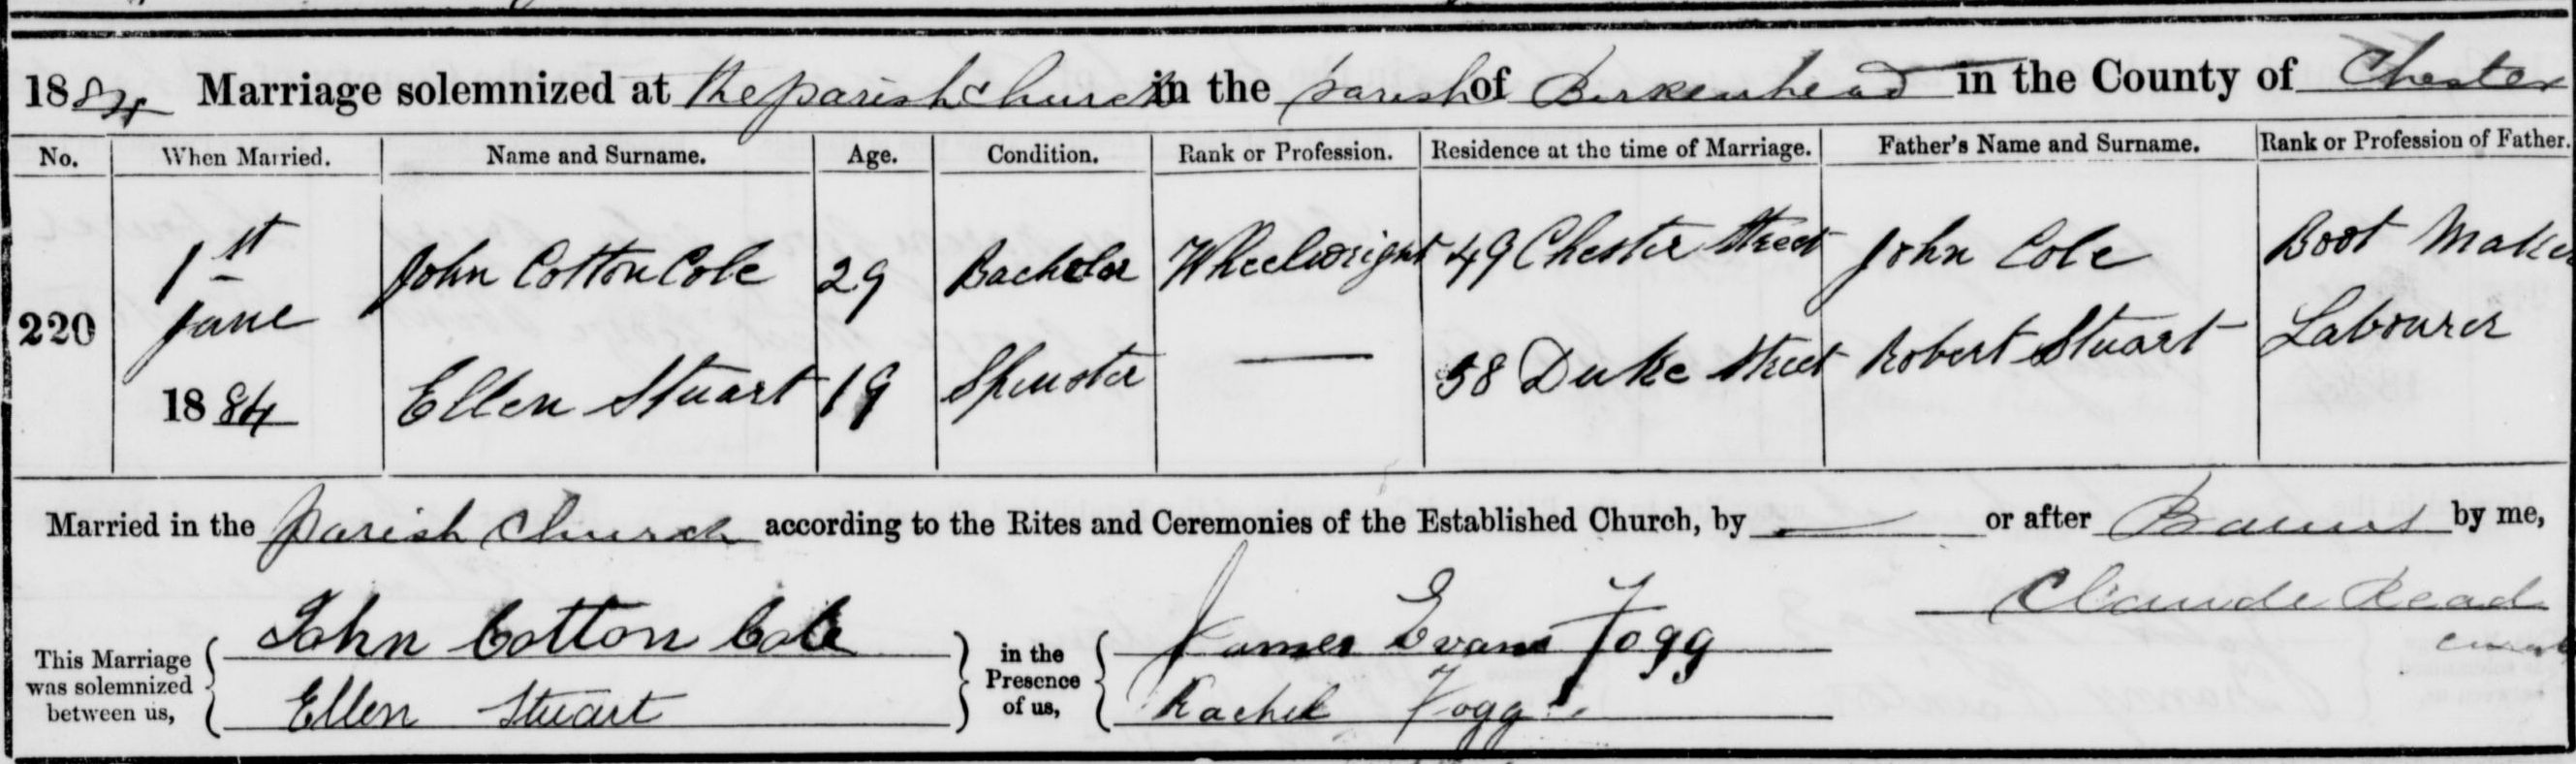 1884 Marriage solemnized at the parish church in the parish of Birkenhead in the County of Chester
No. When Married. Name and Surname. Age. Condition. Rank or Profession. Residence at the time of Marriage. Father's Name and Surname. Rank or Profession of Father.
220 1st June 1884
John Cotton Cole 29 Bachelor Wheelwright 49 Chester Street John Cole Boot Maker
Ellen Stuart 19 Spinster — 58 Duke Street Robert Stuart Labourer
Married in the parish church according to the Rites and Ceremonies of the Established Church, by — or after Banns by me,
Claude Read
curate
This Marriage was solemnized between us,
John Cotton Cole
Ellen Stuart
in the Presence of us,
James Evans Fogg
Rachel Fogg